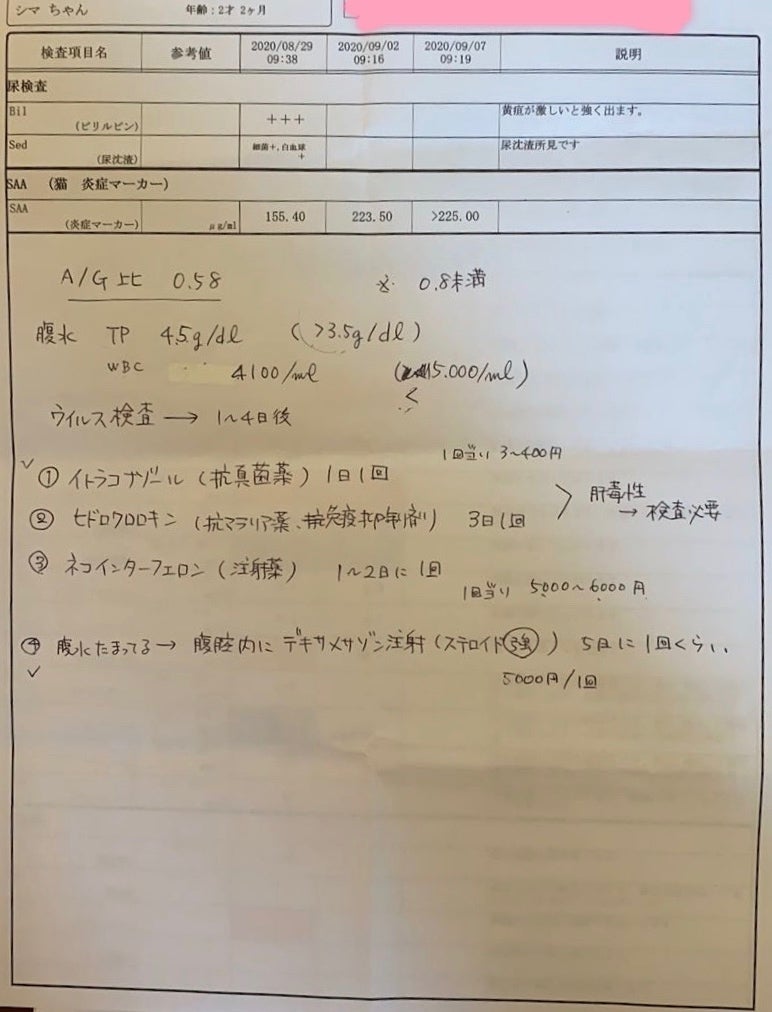 シマ ちゃん 年齢：2才 2ヶ月
検査項目名 参考値 2020/08/29 09:38 2020/09/02 09:16 2020/09/07 09:19 説明
尿検査
Bil (ビリルビン) +++ 黄疸が激しいと強く出ます。
Sed (尿沈渣) 細菌+,白血球+ 尿沈渣所見です
SAA (猫 炎症マーカー)
SAA (炎症マーカー) μg/ml 155.40 223.50 >225.00
A/G比 0.58 ※ 0.8未満
腹水 TP 4.5g/dl (>3.5g/dl)
WBC 4100/ml (<15.000/ml)
ウイルス検査 → 1〜4日後
1回当り 3〜400円
① イトラコナゾール (抗真菌薬) 1日1回
② ヒドロクロロキン (抗マラリア薬、抗免疫抑制剤) 3日1回
肝毒性 → 検査必要
③ ネコインターフェロン (注射薬) 1〜2日に1回
1回当り 5000〜6000円
④ 腹水たまってる → 腹腔内にデキサメサゾン注射 (ステロイド強) 5日に1回くらい
5000円/1回